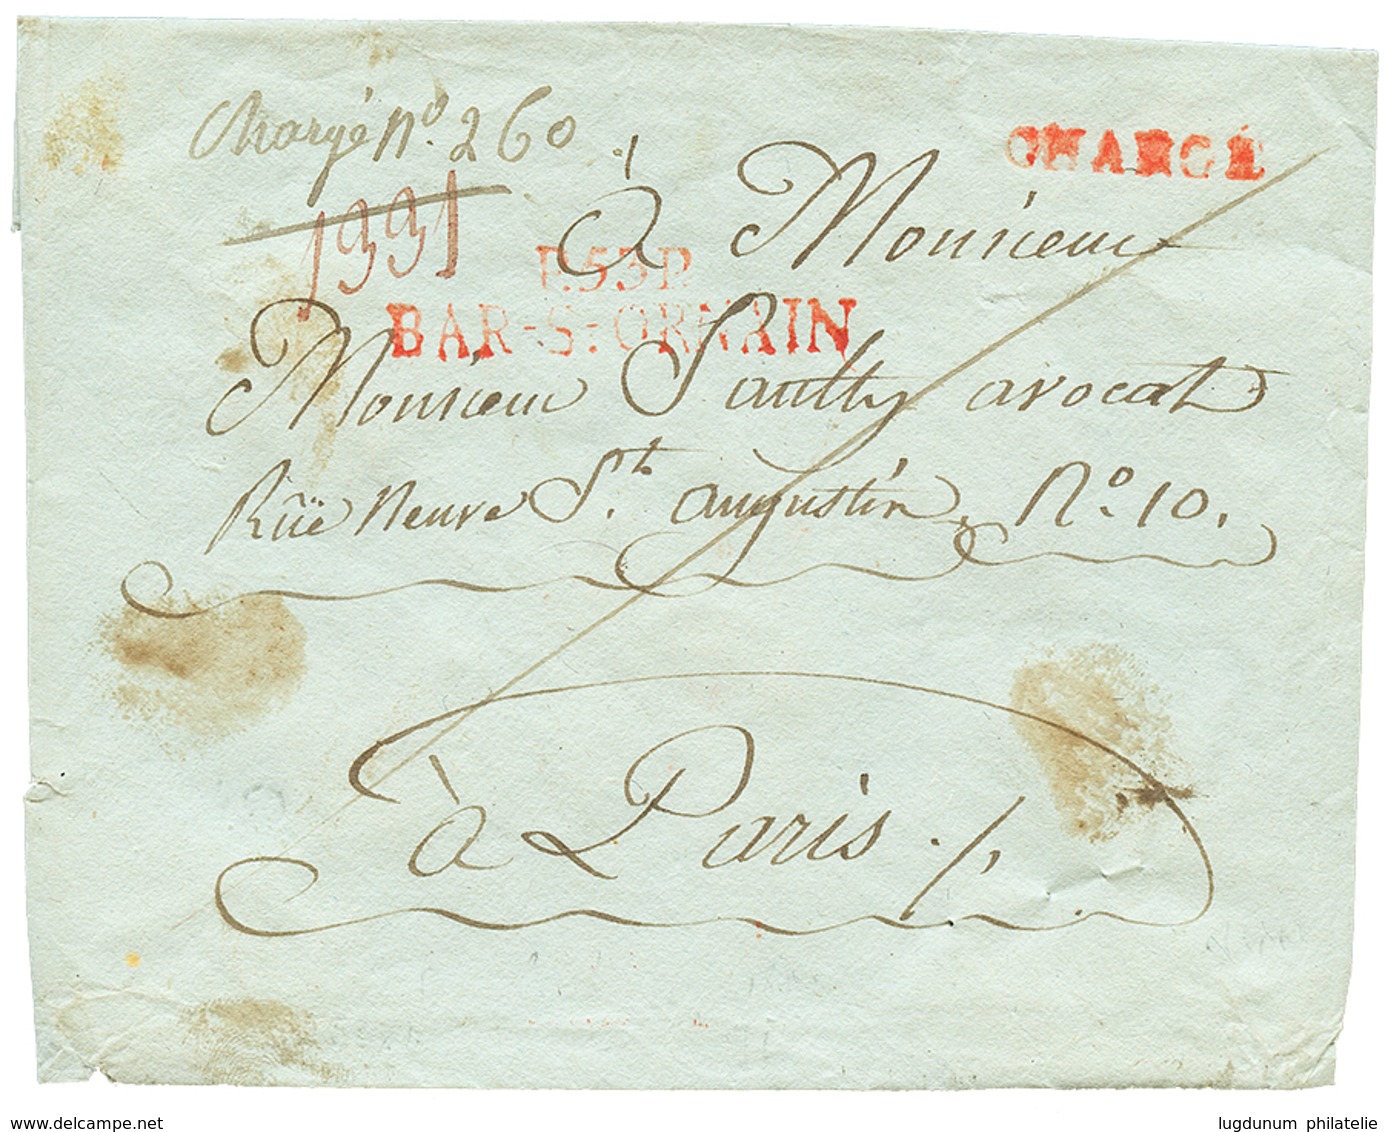 Chargé N° 260
CHARGÉ
1991
à Monsieur
P.53.P
BAR-S-ORNAIN
Monsieur avocat
Rüe neuve St. augustin, N° 10.
à Paris ./.
delcampe.net
lugdunum philatelie